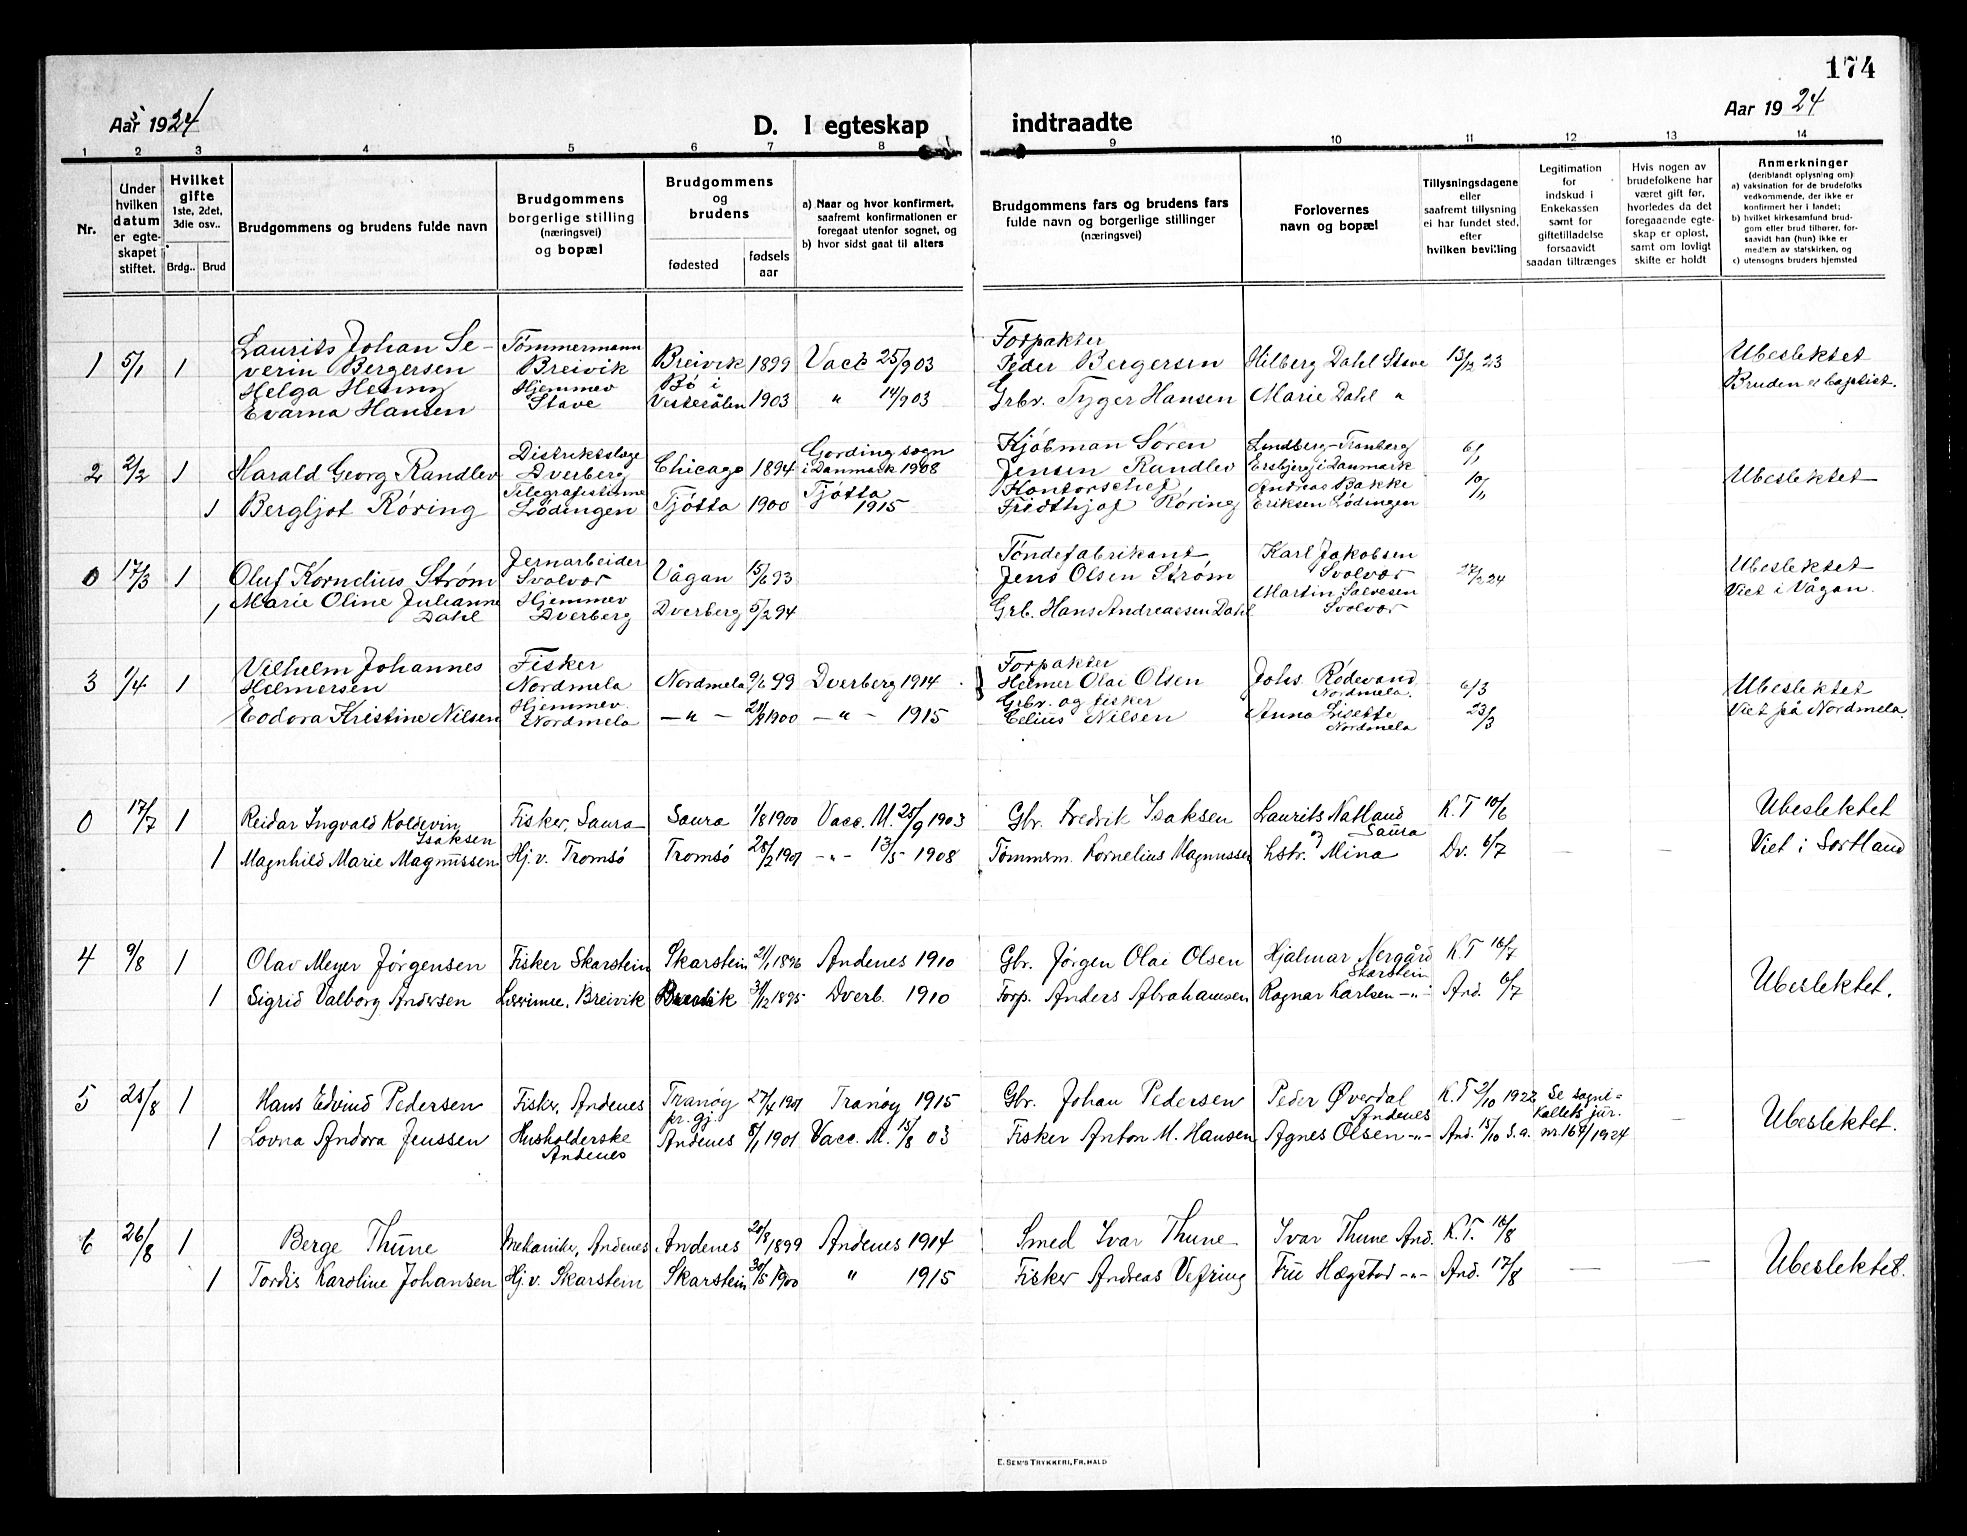 174
Aar 1924
D. I egteskap
indtraadte
Aar 1924
1 2 3 4 5 6 7 8 9 10 11 12 13 14
Nr.
Under hvilken datum er egteskapet stiftet.
Hvilket gifte 1ste, 2det, 3die osv..
Brdg.. Brud
Brudgommens og brudens fulde navn
Brudgommens borgerlige stilling (næringsvei) og bopæl
Brudgommens og brudens
fødested
fødselsaar
a) Naar og hvor konfirmert, saafremt konfirmationen er foregaat utenfor sognet, og
b) hvor sidst gaat til alters
Brudgommens fars og brudens fars fulde navn og borgerlige stillinger (næringsvei)
Forlovernes navn og bopæl
Tillysningsdagene eller saafremt tillysning ei har fundet sted, efter hvilken bevilling
Legitimation for indskud i Enkekassen samt for giftetilladelse forsaavidt saadan tiltrænges
Hvis nogen av brudefolkene har været gift før, hvorledes da det foregaaende egteskap er opløst, samt om lovligt skifte er holdt
Anmerkninger (deriblandt oplysning om)
a) vaksination for de brudefolks vedkommende, der ikke er konfirmert her i landet;
b) hvilket kirkesamfund brudgom eller brud tilhører, forsaavidt han (hun) ikke er medlem av statskirken, og
c) utensogns bruders hjemsted
1 5/1 1 Laurits Johan Severin Bergersen Tømmermann Breivik Breivik 1899 Vacc 25/9 03 Forpakter Peder Bergersen Hilberg Dahl Stave 13/12 23 Ubeslektet
Helga Henny Evarna Hansen Hjemmev Stave Bø i Vesterålen 1903 " 14/9 03 Grbr. Tyger Hansen Marie Dahl " Bruden er baptist.
2 2/2 1 Harald Georg Randlev Distriktslæge Dverberg Chicago 1894 Gording sogn i Danmark 1908 Kjøbman Søren Jensen Randlev Lindberg-Tranberg Ersbjerg i Danmark 6/1 Ubeslektet
1 Bergljot Røring Telegrafistinne Lødingen Tjøtta 1900 Tjøtta 1915 Kontorschef Fridthjof Røring Andreas Bakke Eriksen Lødingen 10/1
0 17/3 1 Oluf Kornelius Strøm Jernarbeider Svolvær Vågan 15/6 93 Tøndefabrikant Jens Olsen Strøm Karl Jakobsen Svolvær 27/2 24 Ubeslektet
1 Marie Oline Julianne Dahl Hjemmev Dverberg Dverberg 5/2 94 Grb. Hans Andreassen Dahl Martin Salvesen Svolvær Viet i Vågan.
3 1/4 1 Vilhelm Johannes Hilmersen Fisker Nordmela Nordmela 9/6 99 Dverberg 1914 Forpakter Helmer Olai Olsen Johs. Rødevand Nordmela. 6/3 Ubeslektet
Eodora Kristine Nilsen Hjemmev. Nordmela -"- 21/9 1900 -"- 1915 Grbr. og fisker Celius Nilsen Anna Lisette Nordmela 23/3 Viet på Nordmela.
0 17/7 1 Reidar Ingvald Koldevin Isaksen Fisker, Saura Saura 1/8 1900 Vacc. M. 25/9 1903 Gbr. Fredrik Isaksen Laurits Natland Saura K. T 10/6 Ubeslektet
1 Magnhild Marie Magnussen Hj. v. Tromsø Tromsø 28/2 1901 -"- 13/5 1908 Tømmerm. Kornelius Magnussen og hstr. Mina Dv. 6/7 Viet i Sortland
4 9/8 1 Olav Meyer Jørgensen Fisker Skarstein Skarstein 21/1 1896 Andenes 1910 Gbr. Jørgen Olai Olsen Hjalmar Nergård Skarstein K. T 16/7 Ubeslektet.
1 Sigrid Valborg Andersen Lærerinne, Breivik Breivik 31/12 1895 Dverb. 1910 Forp. Anders Abrahamsen Ragnar Karlsen -"- And. 6/7
5 25/8 1 Hans Edvind Pedersen Fisker, Andenes Tranøy pr. gj. 27/4 1901 Tranøy 1915 Gbr. Johan Pedersen Peder Øverdal Andenes K. T 2/10 1922 Se sognekallets jur. Ubeslektet.
1 Lovna Andora Jenssen Husholderske Andenes Andenes 8/1 1901 Vacc. M. 15/8 03 Fisker Anton M. Hansen Agnes Olsen -"- And. 15/10 s.a. nr. 167/1924
6 26/8 1 Berge Thune Mekaniker, Andenes Andenes 20/8 1899 Andenes 1914 Smed Ivar Thune Ivar Thune And. K. T. 10/8 Ubeslektet.
1 Tordis Karoline Johansen Hj. v. Skarstein Skarstein 30/5 1900 " 1915 Fisker Andreas Vefring Fru Hægstad -"- And. 17/8
E. SEM'S TRYKKERI, FR.HALD